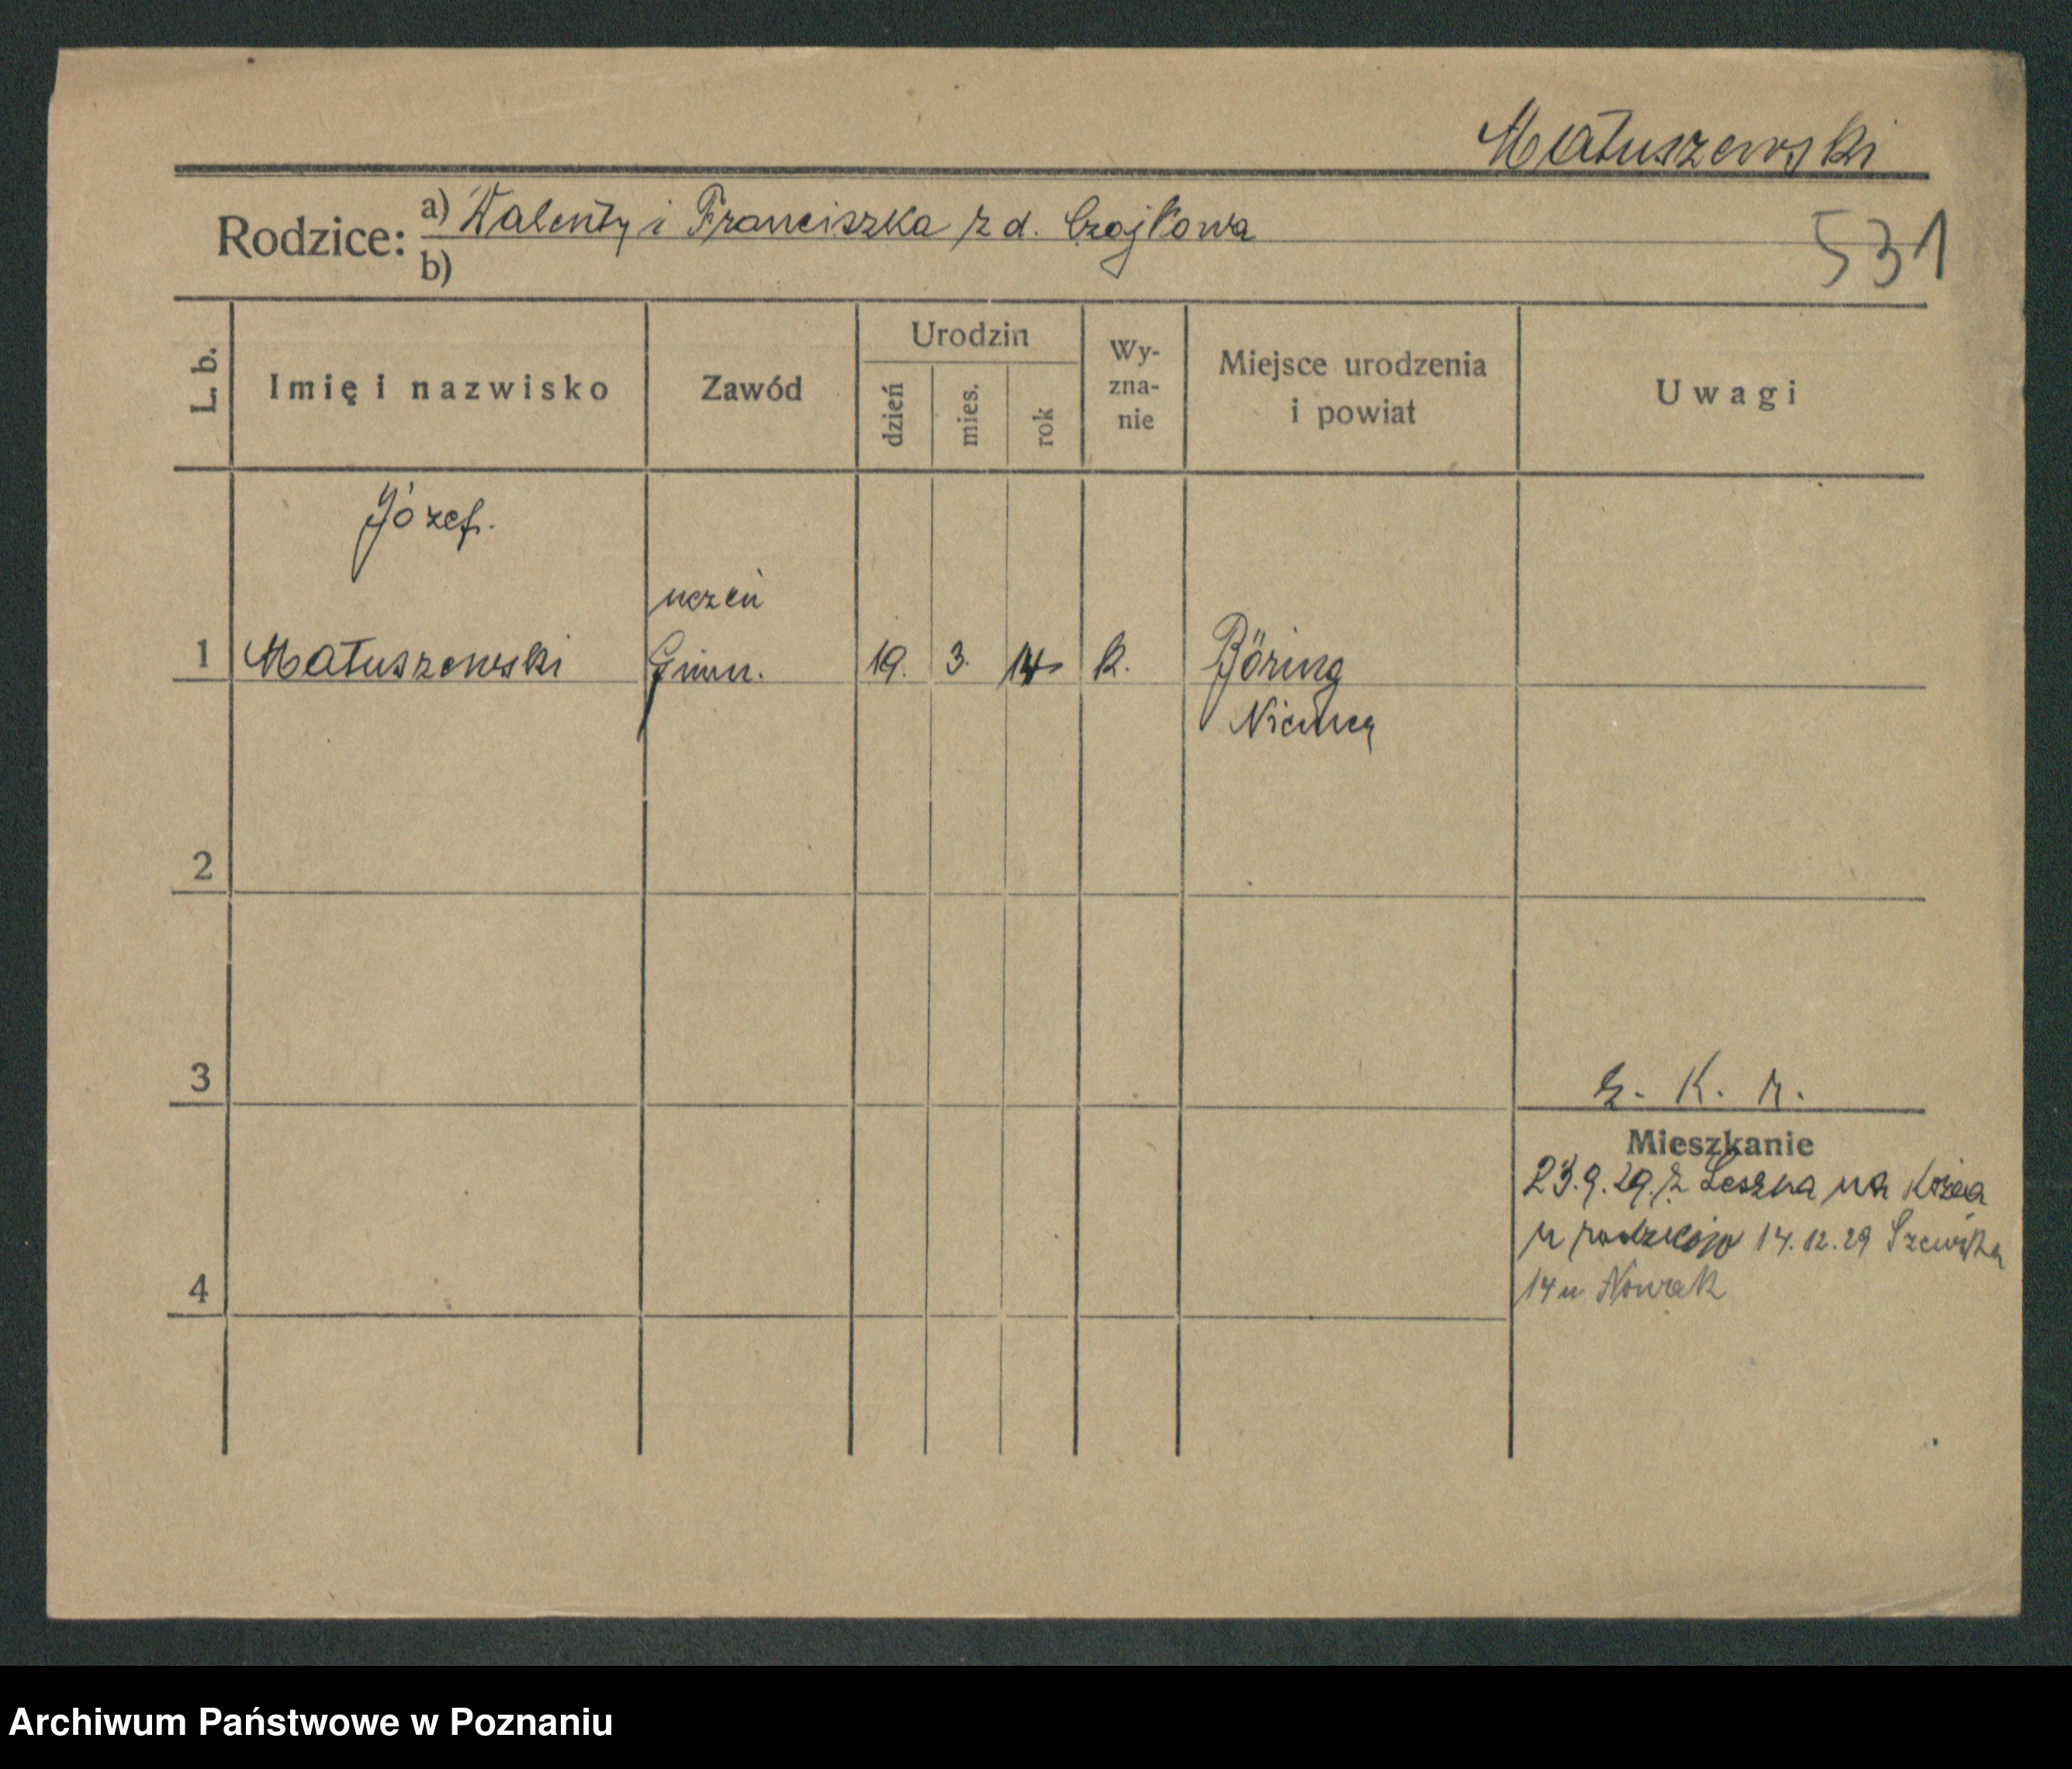 Matuszewski
Rodzice: a) Walenty i Franciszka z d. Czajkowa
b)
531
L. b.
Imię i nazwisko
Zawód
Urodzin
dzień
mies.
rok
Wy-
zna-
nie
Miejsce urodzenia
i powiat
Uwagi
Józef.
uczeń
1 Matuszewski Gimn. 19. 3. 14 k. Böring
Niemcy
2
3
K. r.
Mieszkanie
23.9.29. z Leszna na
u 14.12.29 Szewska
4
14 u Nowak
Archiwum Państwowe w Poznaniu